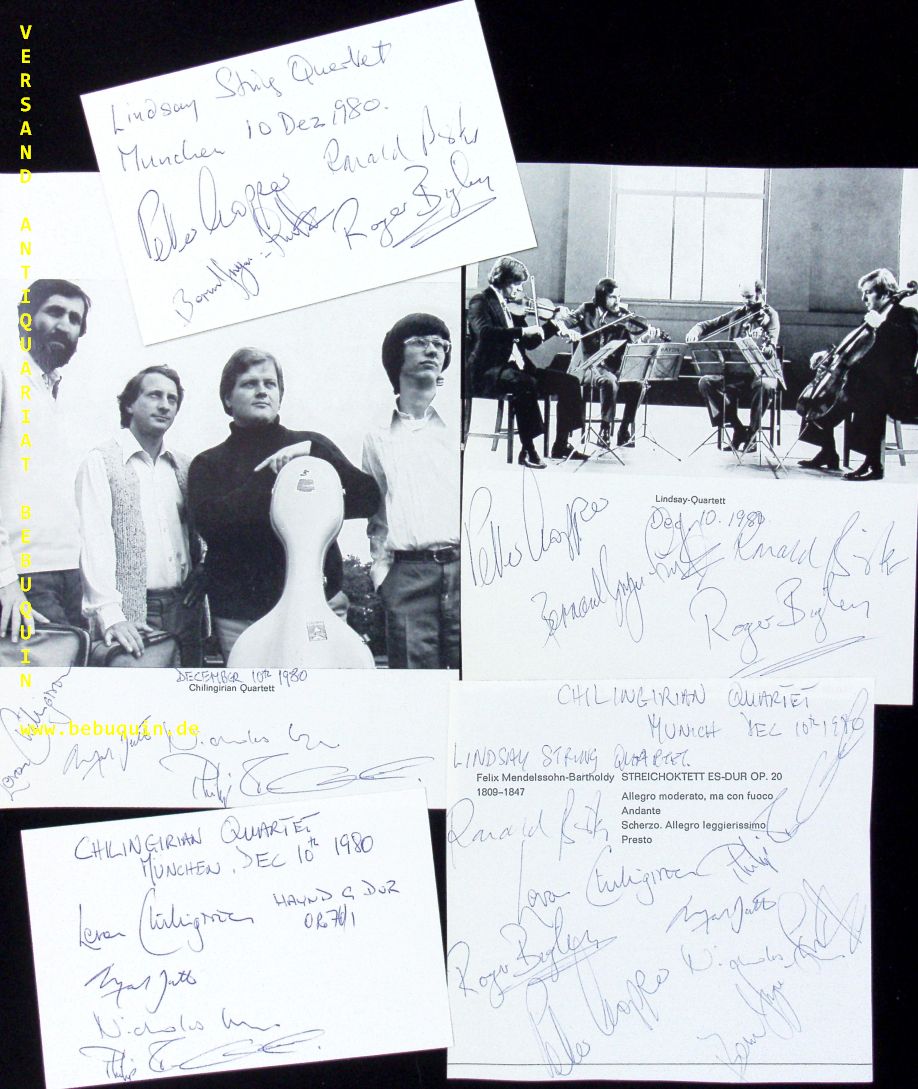 VERSAND ANTIQUARIAT BEBUQUIN
www.bebuquin.de
Lindsay String Quartet
Munchen 10 Dez 1980.
Ronald Birks
Peter Cropper
Roger Bigley
Lindsay-Quartett
Dec 10. 1980
Peter Cropper
Ronald Birks
Roger Bigley
DECEMBER 10th 1980
Chilingirian Quartett
Levon Chilingirian
Nicholas
Philip
CHILINGIRIAN QUARTET
MUNICH DEC 10th 1980
LINDSAY STRING QUARTET.
Felix Mendelssohn-Bartholdy STREICHOKTETT ES-DUR OP. 20
1809–1847
Allegro moderato, ma con fuoco
Andante
Scherzo. Allegro leggierissimo
Presto
Ronald Birks
Levon Chilingirian
Philip
Roger Bigley
Peter Cropper
Nicholas
CHILINGIRIAN QUARTET
MÜNCHEN, DEC 10th 1980
Levon Chilingirian
HAYDN G DUR
OP. 76/1
Nicholas
Philip